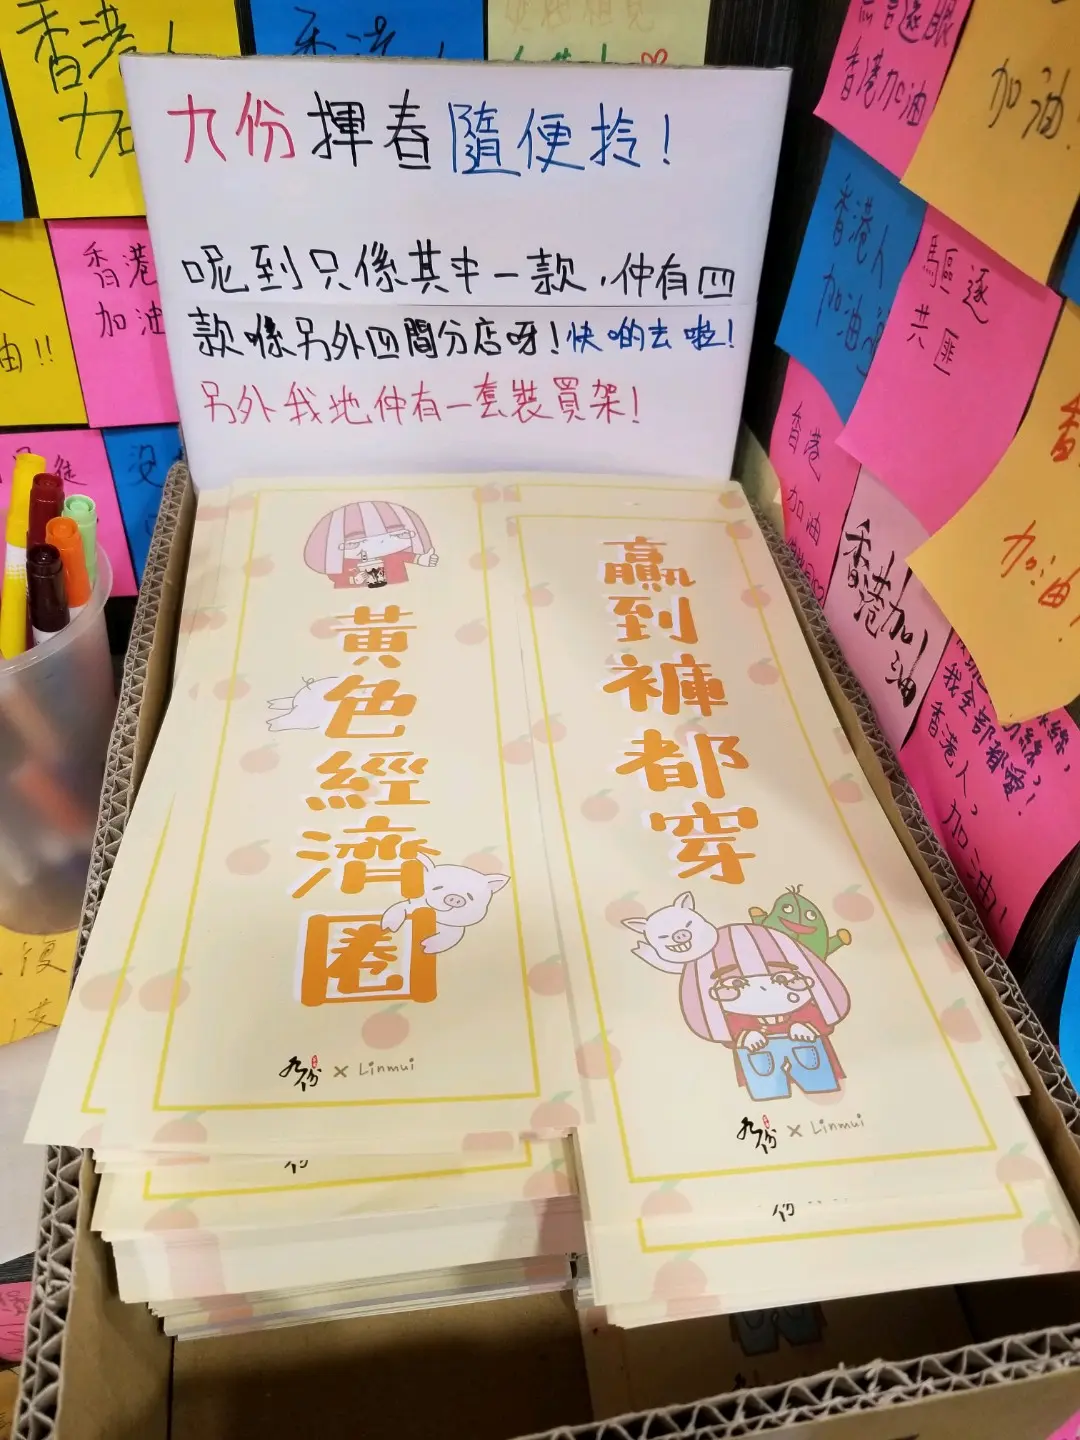 香港人
加
香港人
九份揮春隨便拎!
呢到只係其中一款,仲有四
款喺另外四間分店呀!快啲去啦!
另外我地仲有一套裝買架!
黃色經濟圈
九份 × Linmui
贏到褲都穿
九份 × Linmui
香港
加油
油!!
香港加油
加油!
香港人
加油
驅逐
共匪
香港
加油
香港加油
加油!
我全部都愛!
香港人,
加油!